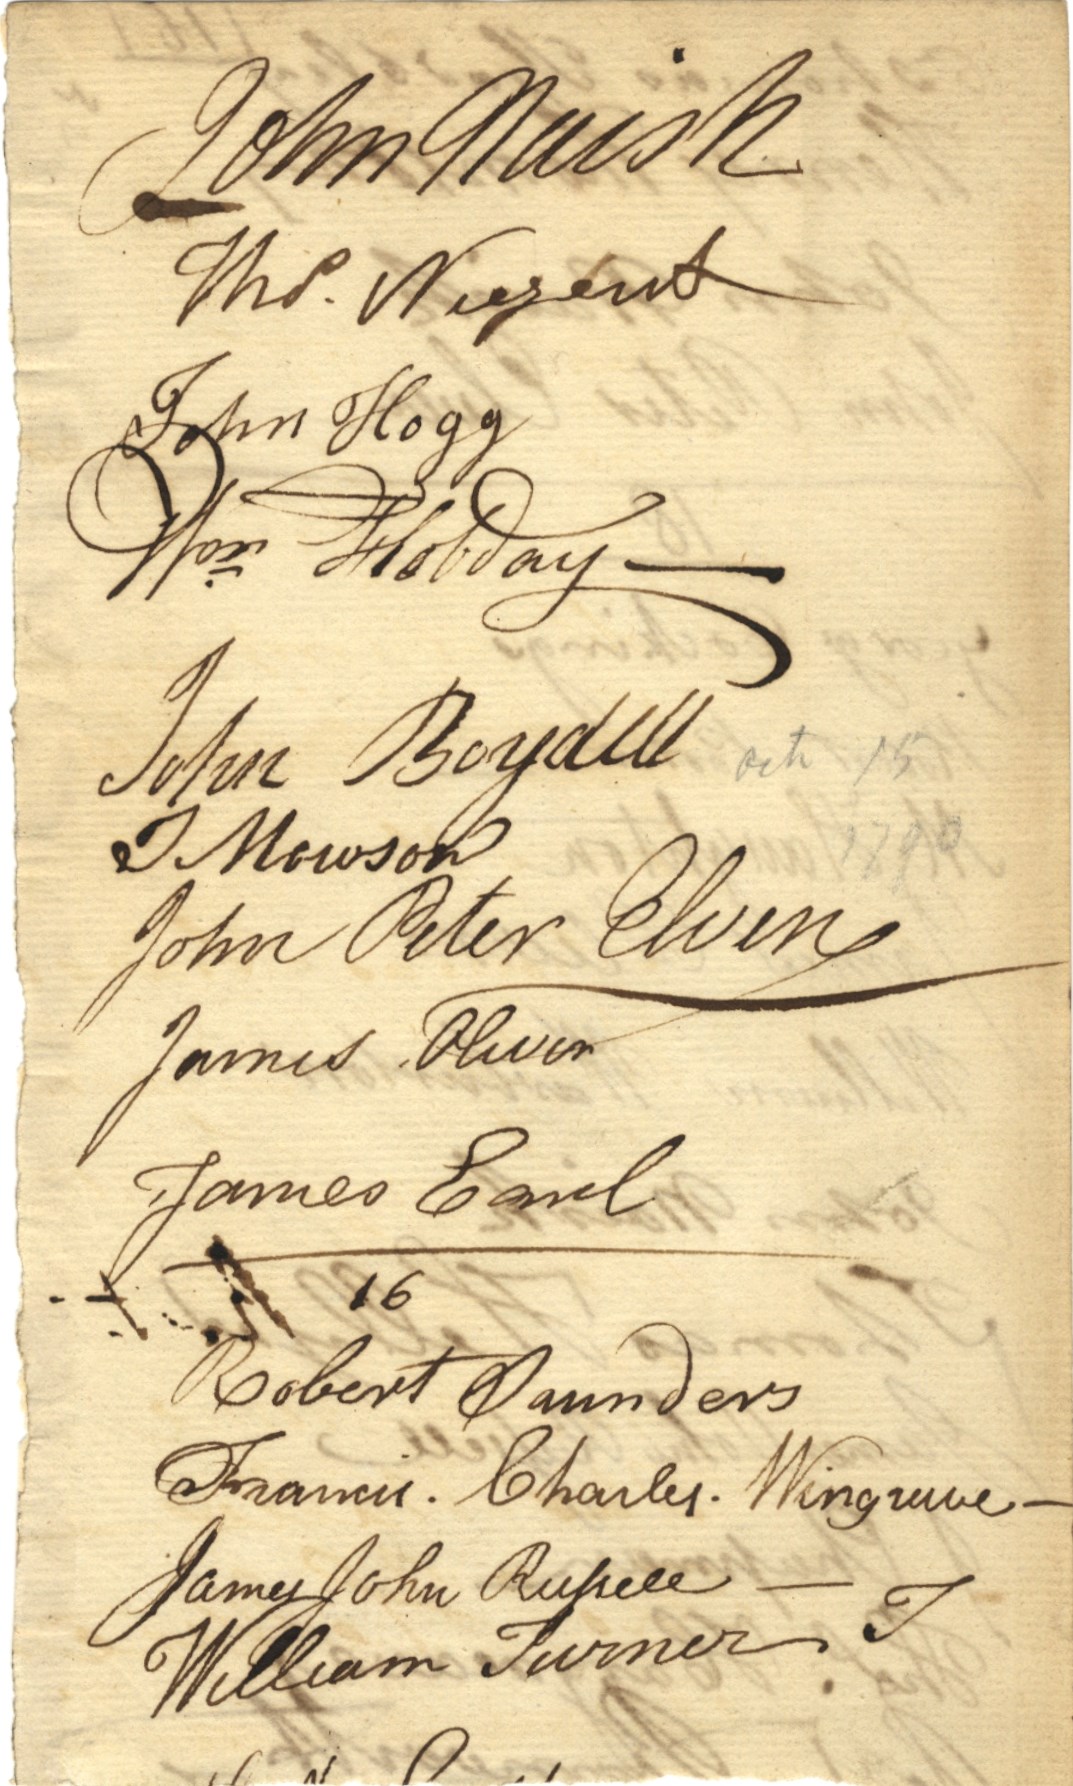 John Naish
Thos. Nugent
John Hogg
Wm Hobday
John Boydell Octr 15
1790
T. Mowson
John Peter Elven
James Oliver
James Earl
16
Robert Saunders
Francis. Charles. Wingrave
James John Russell
William Turner. T